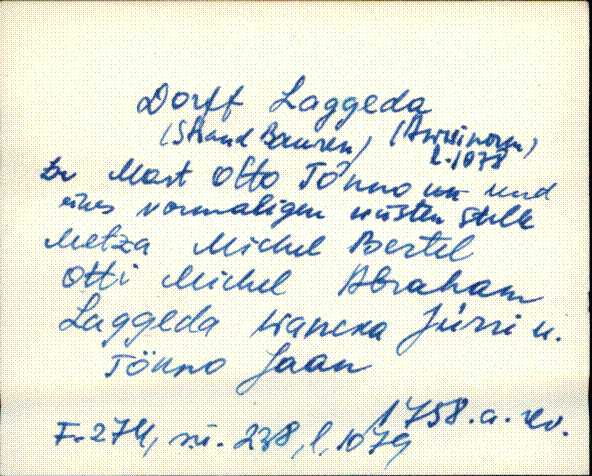 Dorff Laggeda
(Strand Bauren)
l. 1078
Mart Otto Tönno und
eines vormaligen wüsten Stelle
Metza Michel Bertel
Otti Michel Abraham
Laggeda Wancka Jürri u.
Tönno Jaan
1758. a. rev.
F. 274, ni. 238, l. 1079